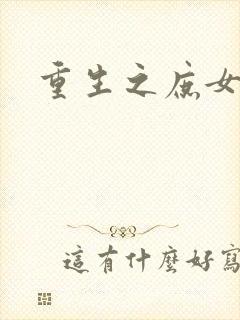 重生之庶女
這有什麼好寫